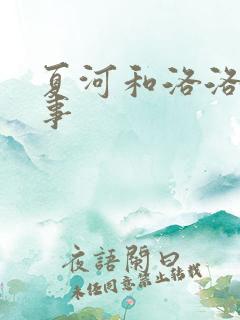 夏河和洛洛
事
夜語闌曰
未任同意禁止转载